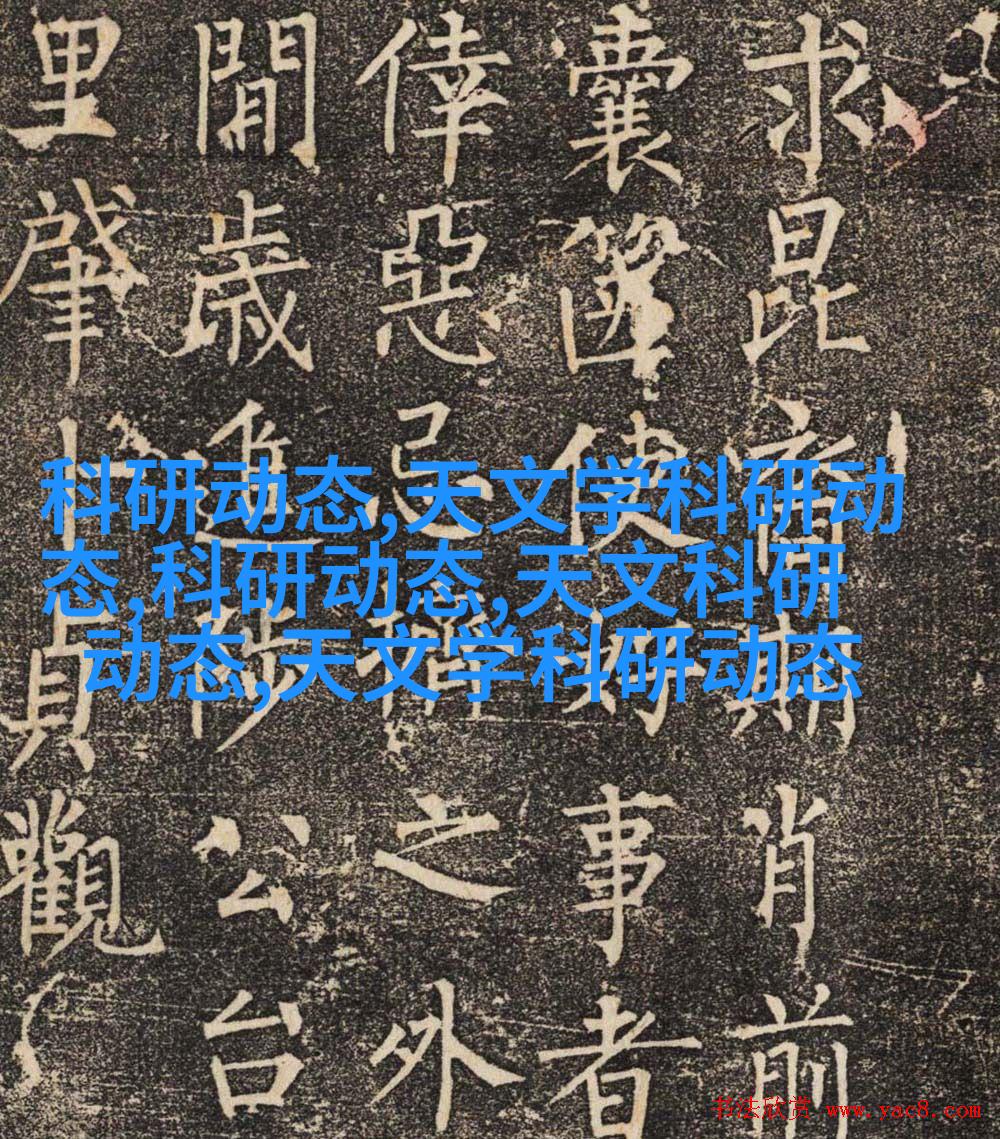 科研动态,天文学科研动
态,科研动态,天文科研
动态,天文学科研动态
求昆期肖前
囊篋使好事者
倖惡忌之外
閒歲進陟公台
里肇十貞觀
书法欣赏 www.yac8.com